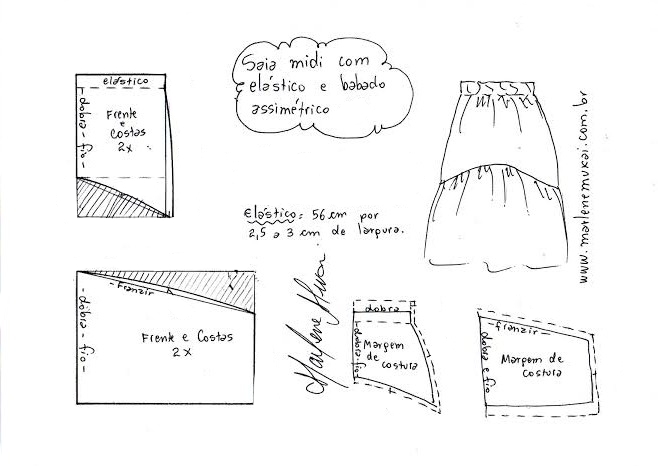 Saia midi com
elástico e babado
assimétrico
elástico
- dobra - fio -
Frente
e
Costas
2x
Elástico: 56 cm por
2,5 a 3 cm de largura.
www.marlenemukai.com.br
- Franzir -
- dobra - fio -
Frente e Costas
2x
Marlene Mukai
dobra
- dobra - fio -
Margem
de
costura
- franzir -
dobra e fio
Margem de
costura